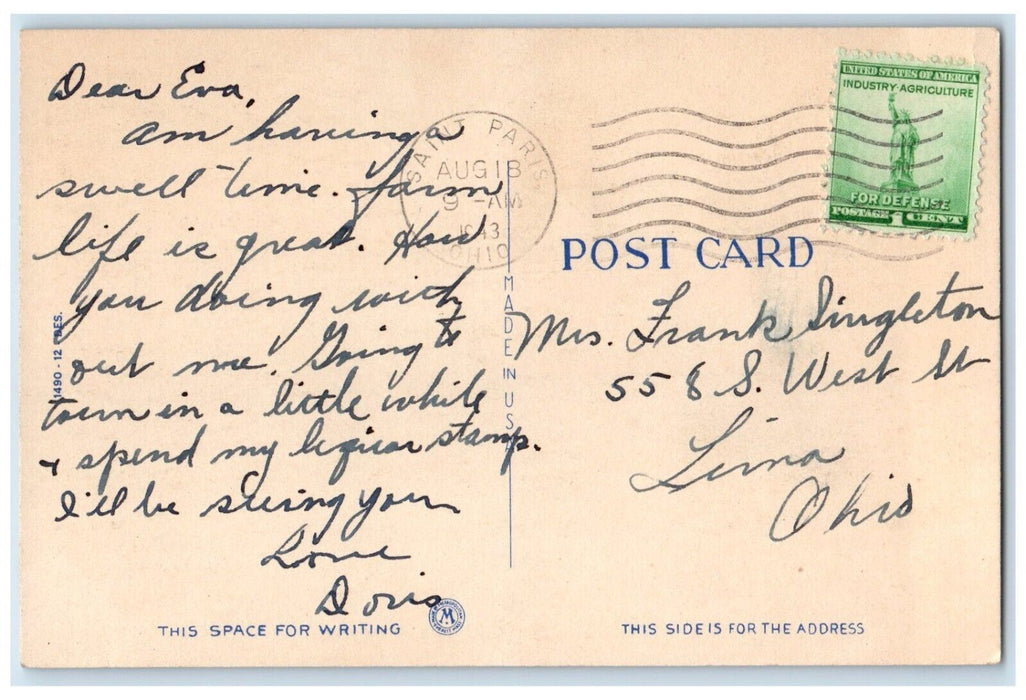 Dear Eva,
am having a
swell time. farm
life is great. How
you doing with
out me. Going to
town in a little while
+ spend my liquor stamp.
I'll be seeing you
Love
Doris
THIS SPACE FOR WRITING
1490 - 12 DES.
MADE IN USA
SAINT PARIS
AUG 18
9 - AM
OHIO
UNITED STATES OF AMERICA
INDUSTRY·AGRICULTURE
FOR DEFENSE
POSTAGE 1 CENT
POST CARD
Mrs. Frank Singleton
558 S. West St
Lima
Ohio
THIS SIDE IS FOR THE ADDRESS
M